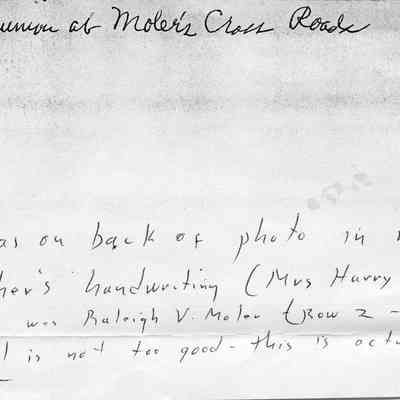 union at Moler's Cross Roads
as on back of photo in
her's handwriting (Mrs Harry
was Raleigh V. Moler (Row 2 -
l is not too good - this is actu